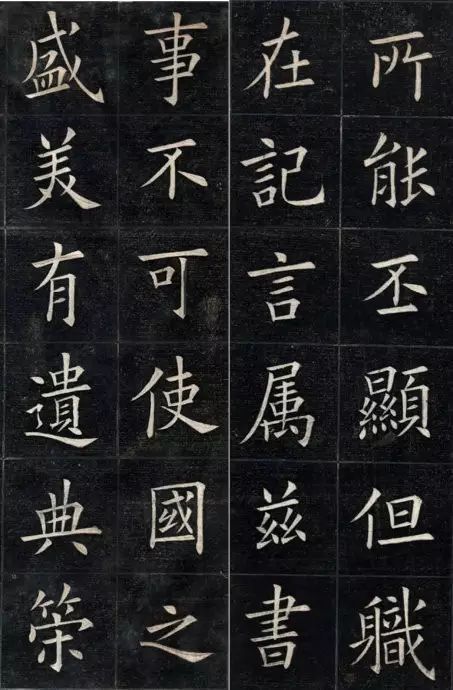 所能丕顯但軄
在記言属兹書
事不可使國之
盛美有遺典䇿